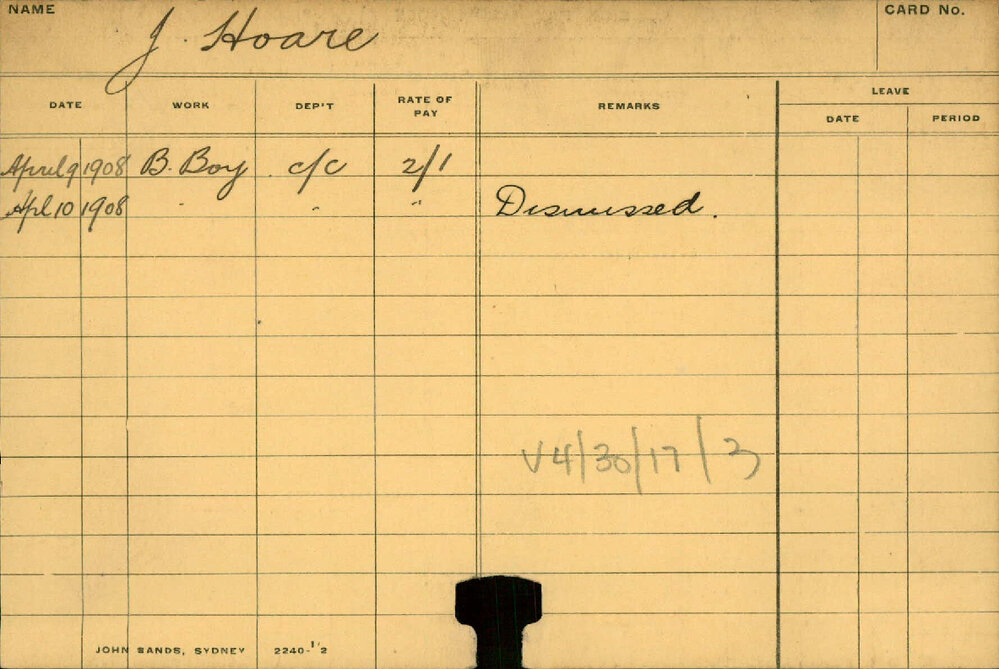 NAME J. Hoare CARD No.
DATE WORK DEP'T RATE OF PAY REMARKS LEAVE
DATE PERIOD
April 9 1908 B. Boy c/c 2/1
Apl 10 1908 " " " Dismissed.
V4/30/17/3
JOHN SANDS, SYDNEY 2240-1/2